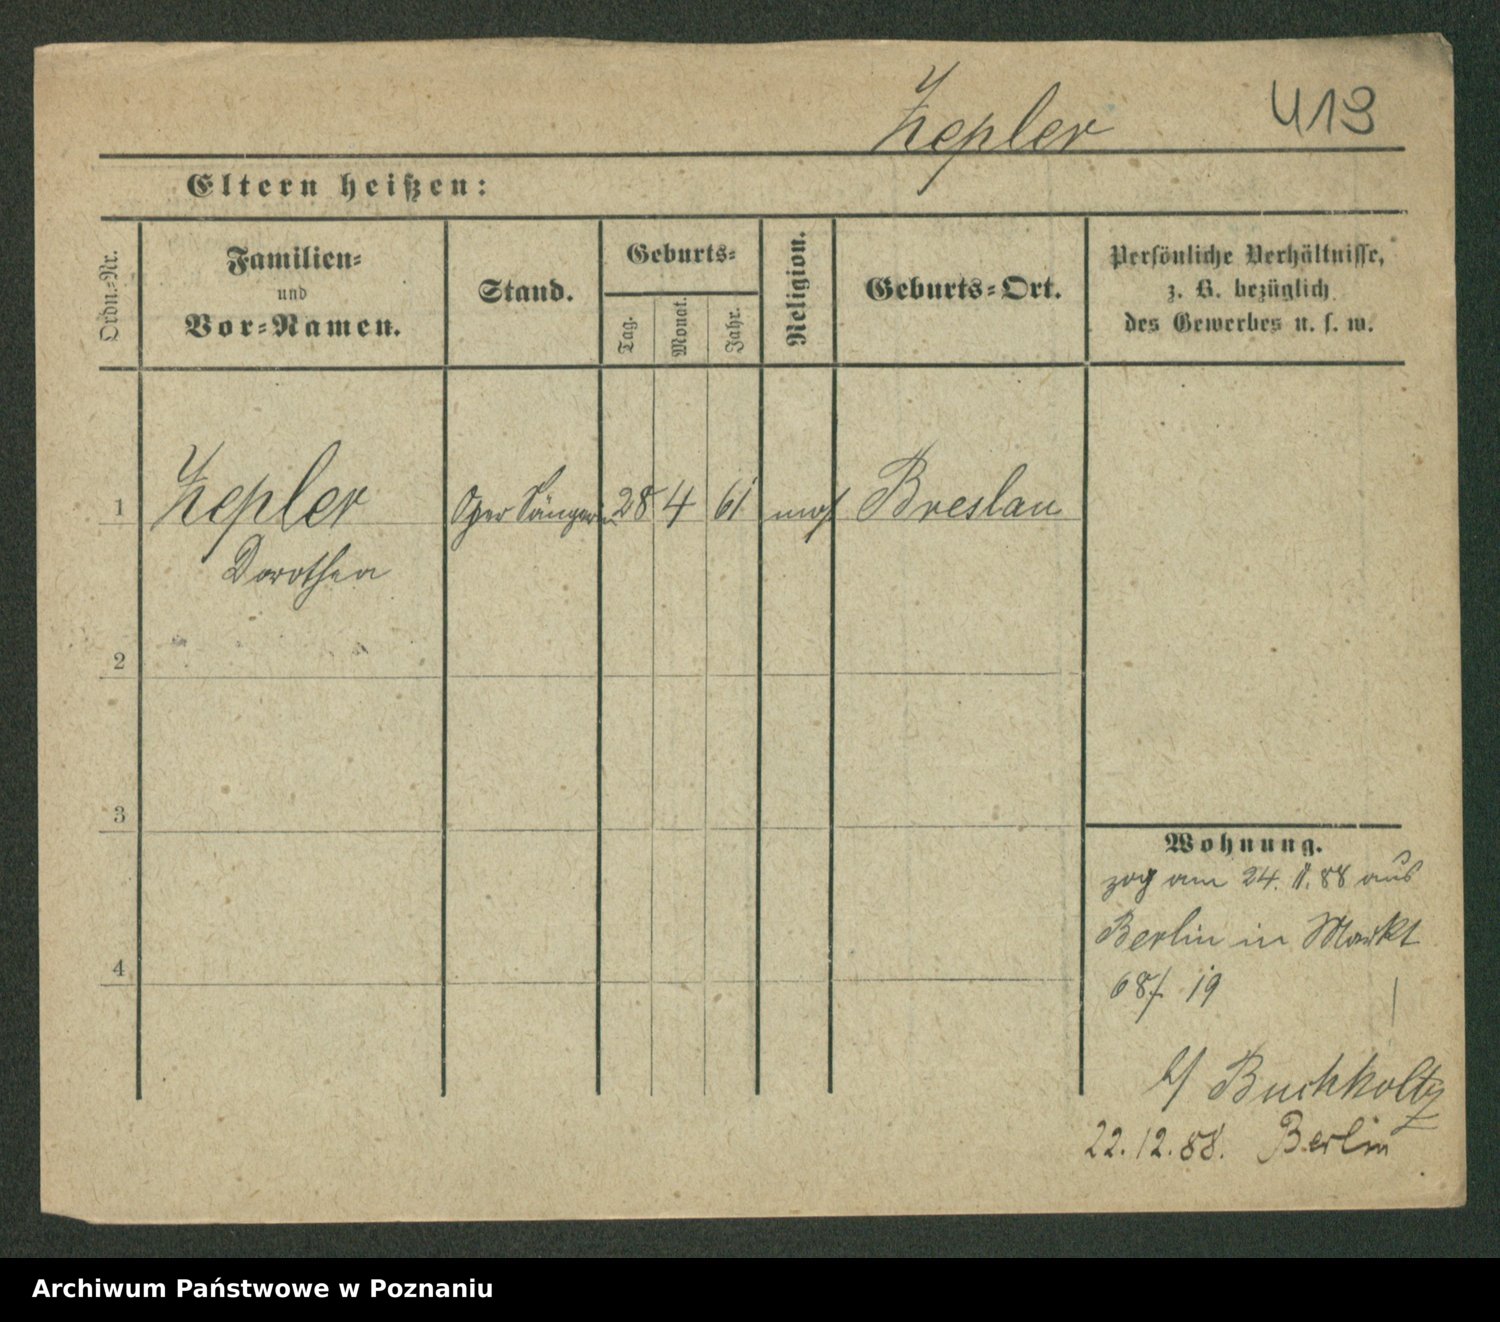 Zepler
413
Eltern heißen:
Ordn.-Nr.
Familien-
und
Vor-Namen.
Stand.
Geburts-
Tag.
Monat.
Jahr.
Religion.
Geburts-Ort.
Persönliche Verhältnisse,
z. B. bezüglich
des Gewerbes u. s. w.
1
Zepler
Dorothea
Oper Sängerin
28
4
61
mos
Breslau
2
3
4
Wohnung.
zog am 24. 11. 88 aus
Berlin in Markt
68/ 19
b/ Buchholtz
22.12.88. Berlin
Archiwum Państwowe w Poznaniu